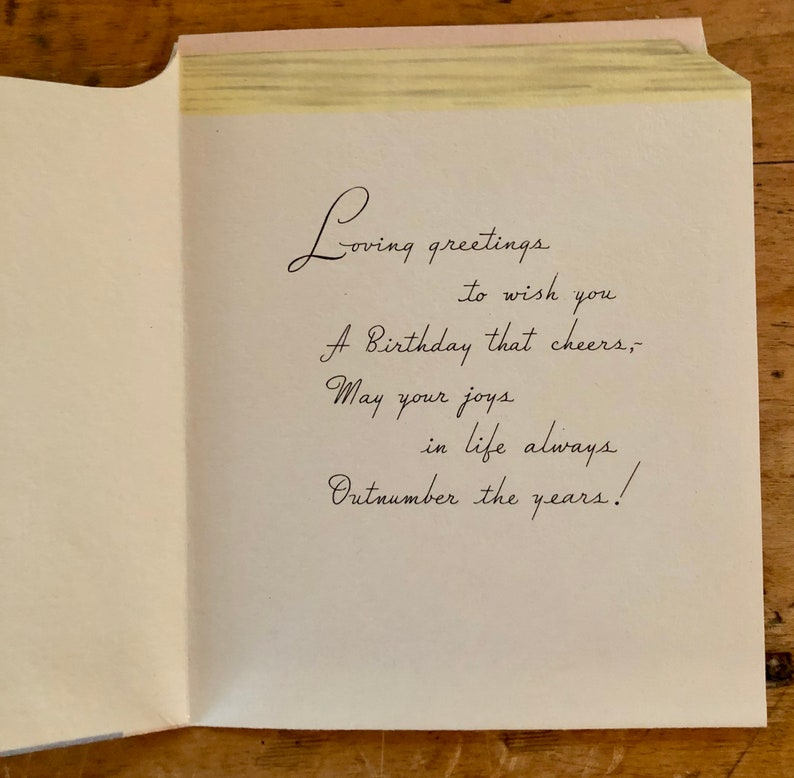 Loving greetings
to wish you
A Birthday that cheers,-
May your joys
in life always
Outnumber the years!